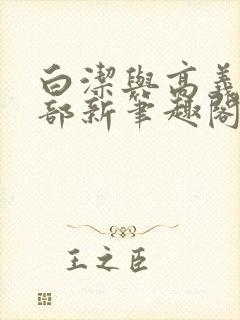 白潔與高義
部新筆趣閣
王之臣